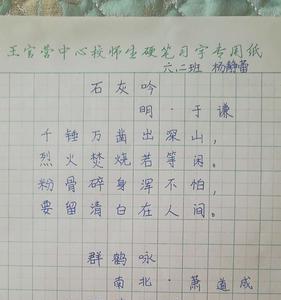 王官营中心校师生硬笔习字专用纸
六.二班 杨静蕾
石灰吟
明·于谦
千锤万凿出深山，
烈火焚烧若等闲。
粉骨碎身浑不怕，
要留清白在人间。
群鹤咏
南北·萧道成